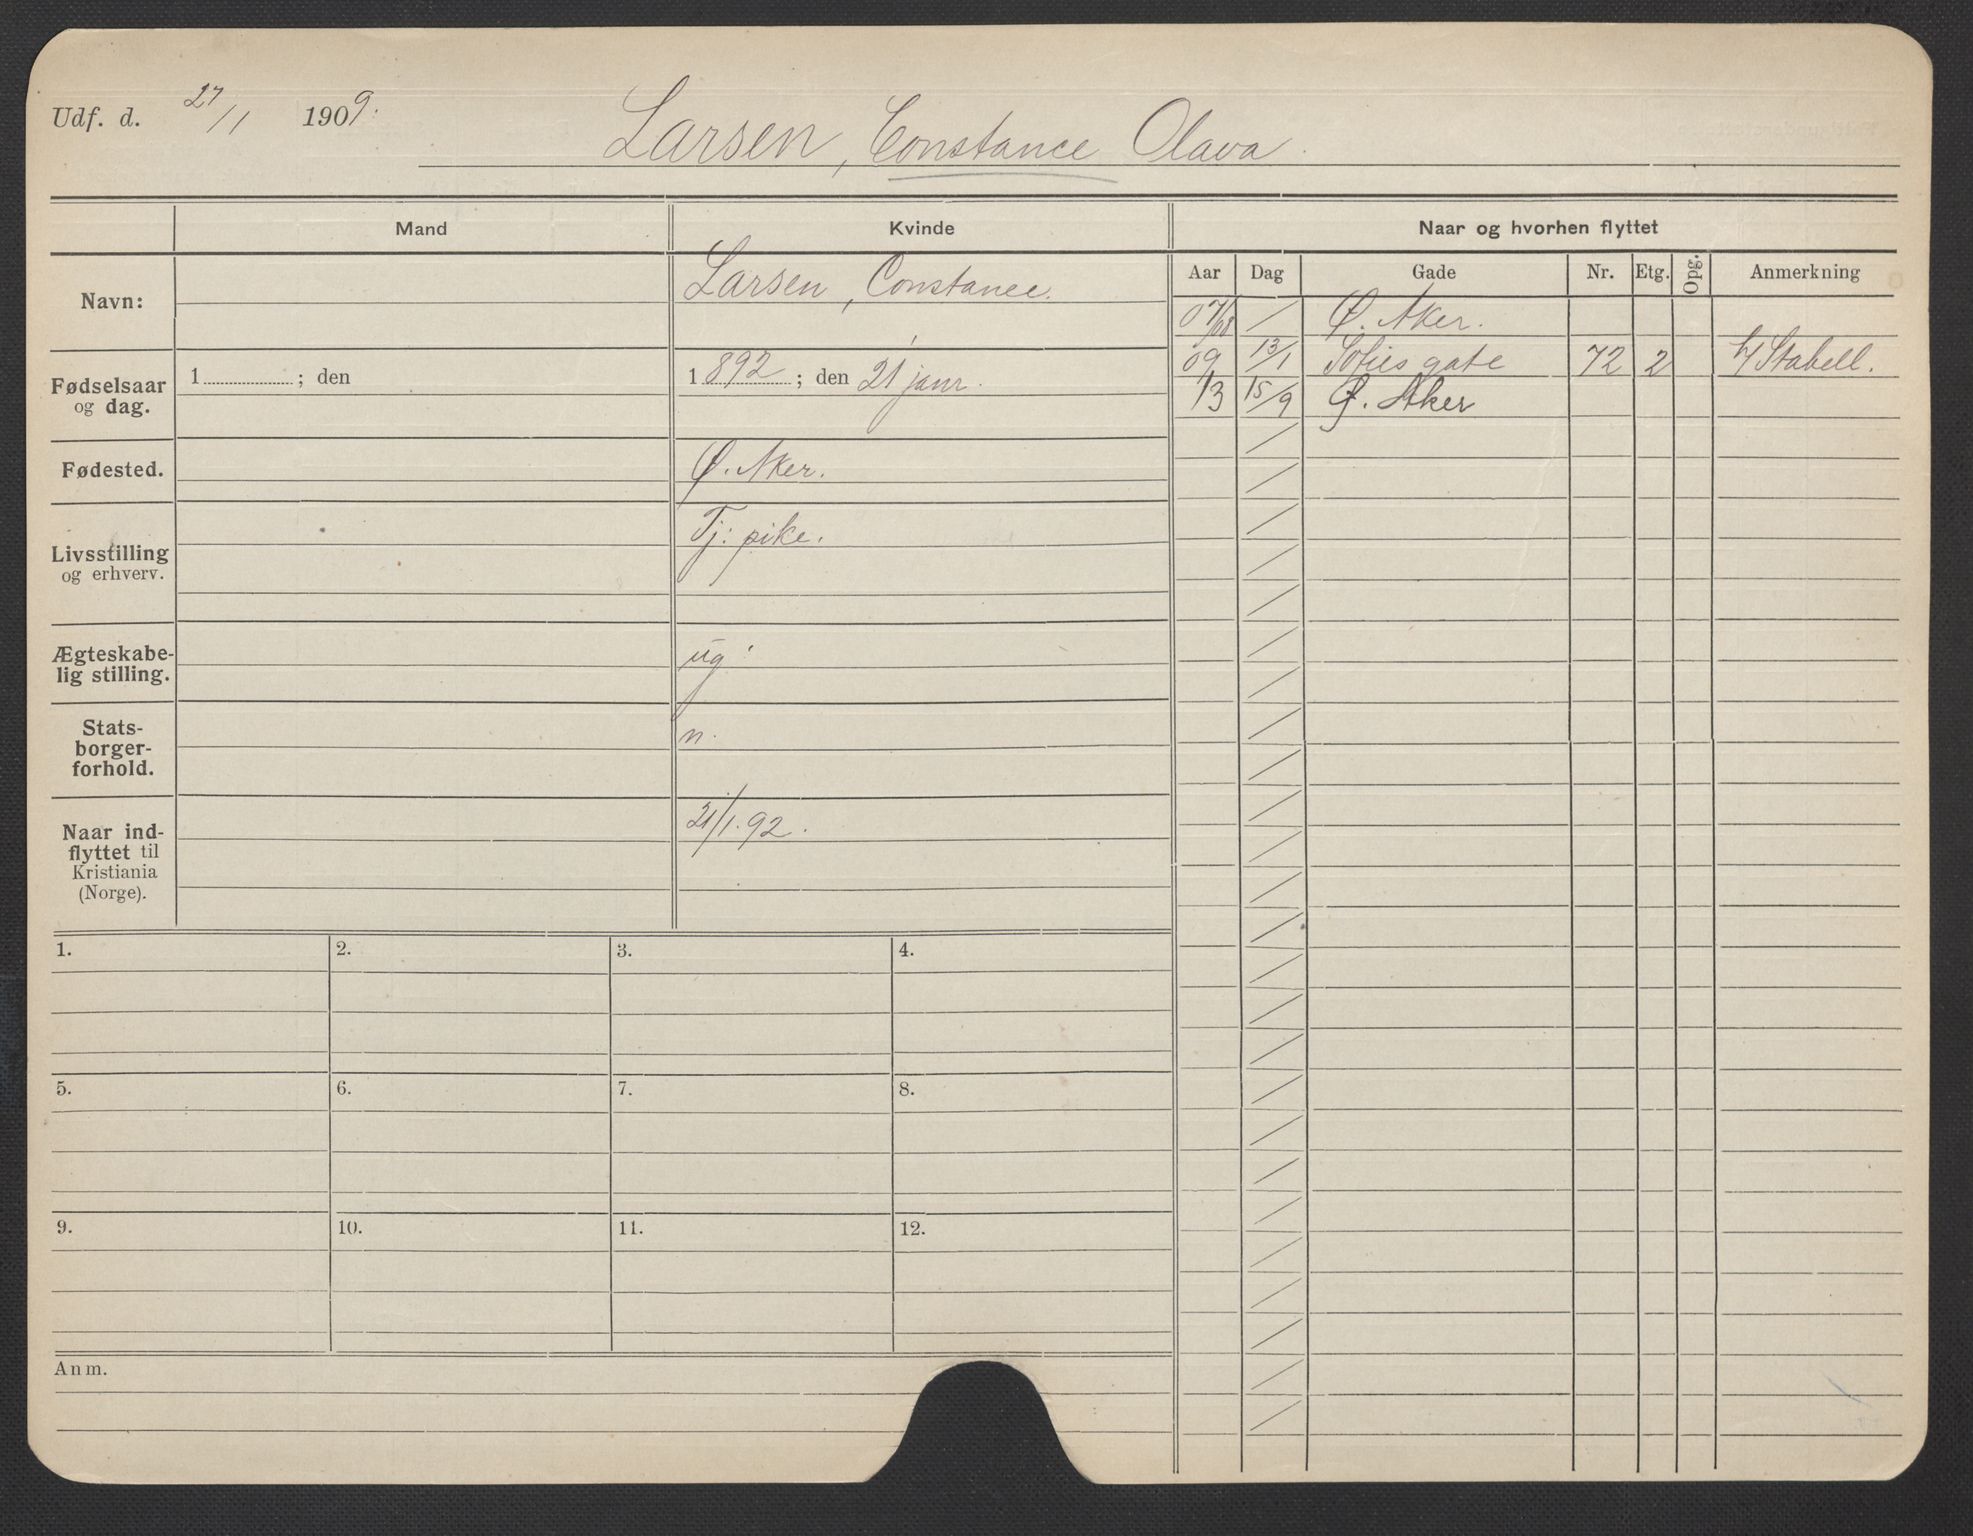 Udf. d. 27/1 1909.
Larsen, Constance Olava.
Mand Kvinde Naar og hvorhen flyttet
Aar Dag Gade Nr. Etg. Opg. Anmerkning
Navn: Larsen, Constance.
07/08 / Ø. Aker.
09 13/1 Sofies gate 72 2 h/ Stabell.
13 15/9 Ø. Aker
Fødselsaar
og dag.
1 ; den 1892 ; den 21 janr.
Fødested. Ø. Aker.
Livsstilling
og erhverv.
Tj: pike.
Ægteskabe-
lig stilling.
ug.
Stats-
borger-
forhold.
n.
Naar ind-
flyttet til
Kristiania
(Norge).
21/1.92.
1. 2. 3. 4.
5. 6. 7. 8.
9. 10. 11. 12.
Anm.